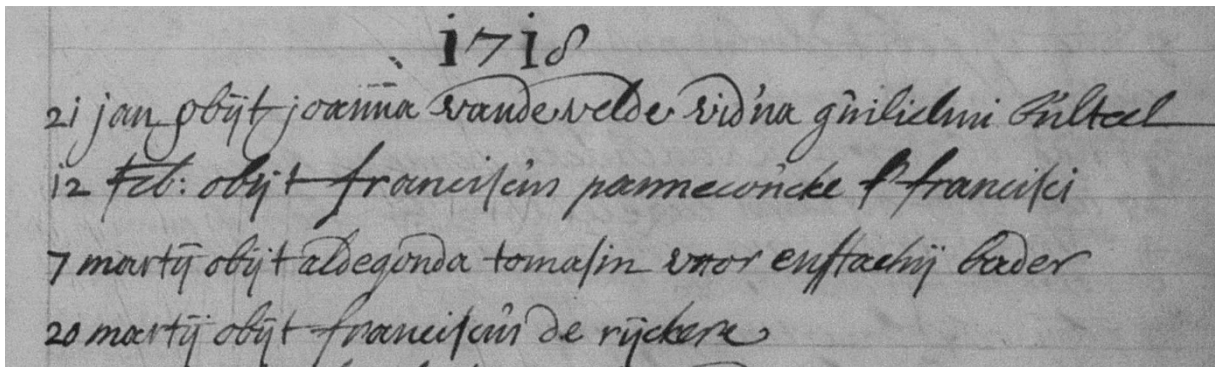 1718
21 jan obijt joanna vande velde vid'na guilielmi bulteel
12 feb: obijt franciscus pannecoucke f^s francisci
7 martij obijt aldegonda tomasin uxor eustachij bader
20 martij obijt franciscus de rijckere